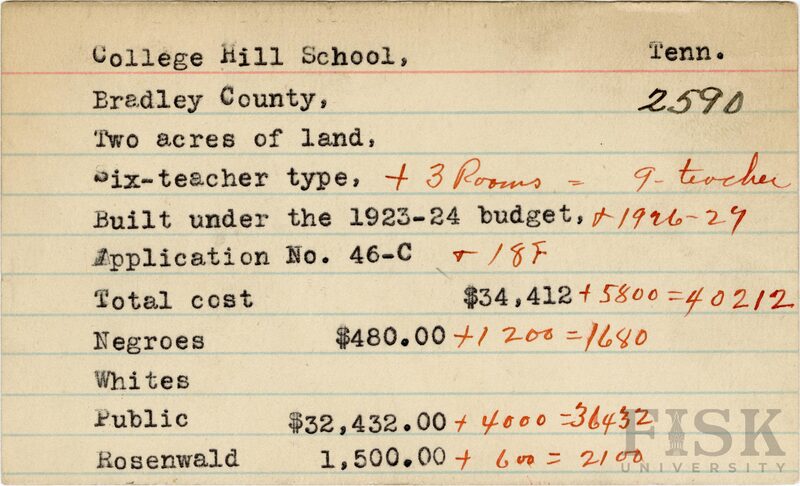 College Hill School, Tenn.
Bradley County, 2590
Two acres of land,
Six-teacher type, + 3 Rooms = 9-teacher
Built under the 1923-24 budget, + 1926-27
Application No. 46-C + 18F
Total cost $34,412 + 5800 = 40212
Negroes $480.00 + 1200 = 1680
Whites
Public $32,432.00 + 4000 = 36432
Rosenwald 1,500.00 + 600 = 2100
FISK
UNIVERSITY